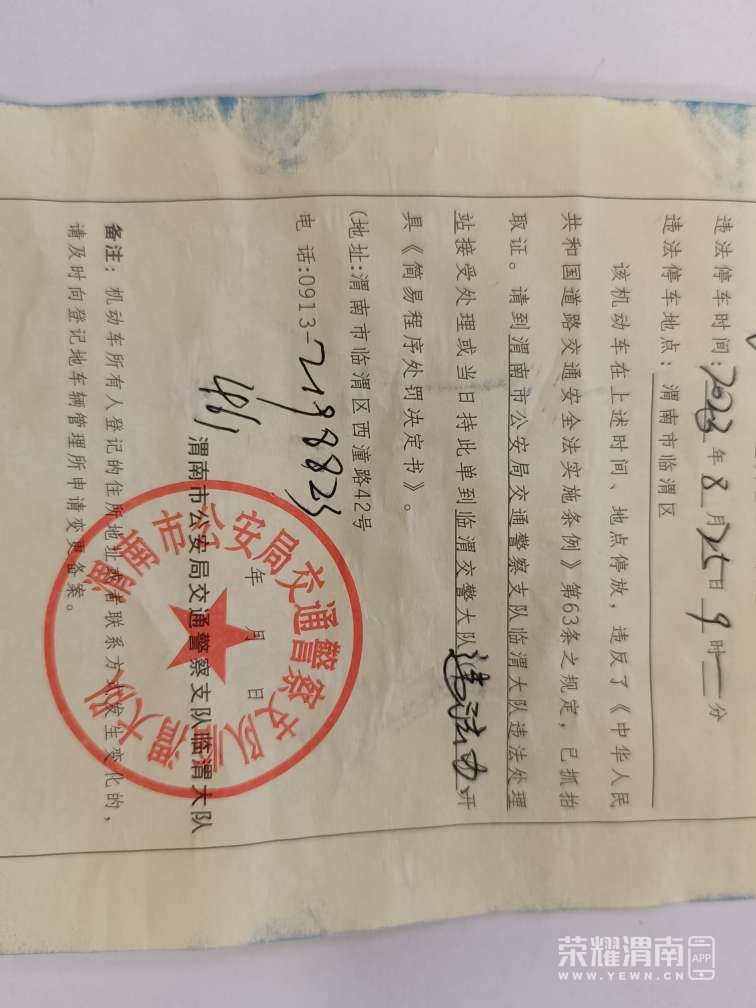 违法停车时间:2023年8月25日9时一分
违法停车地点:渭南市临渭区
该机动车在上述时间、地点停放，违反了《中华人民
共和国道路交通安全法实施条例》第63条之规定，已抓拍
取证。请到渭南市公安局交通警察支队临渭大队违法处理
站接受处理或当日持此单到临渭交警大队违法办开
具《简易程序处罚决定书》。
(地址:渭南市临渭区西潼路42号
电 话:0913-2198823
渭南市公安局交通警察支队临渭大队
年 月 日
渭南市公安局交通警察支队临渭大队
备注：机动车所有人登记的住所地址或者联系方式发生变化的，
请及时向登记地车辆管理所申请变更备案。
荣耀渭南 APP
WWW.YEWN.CN